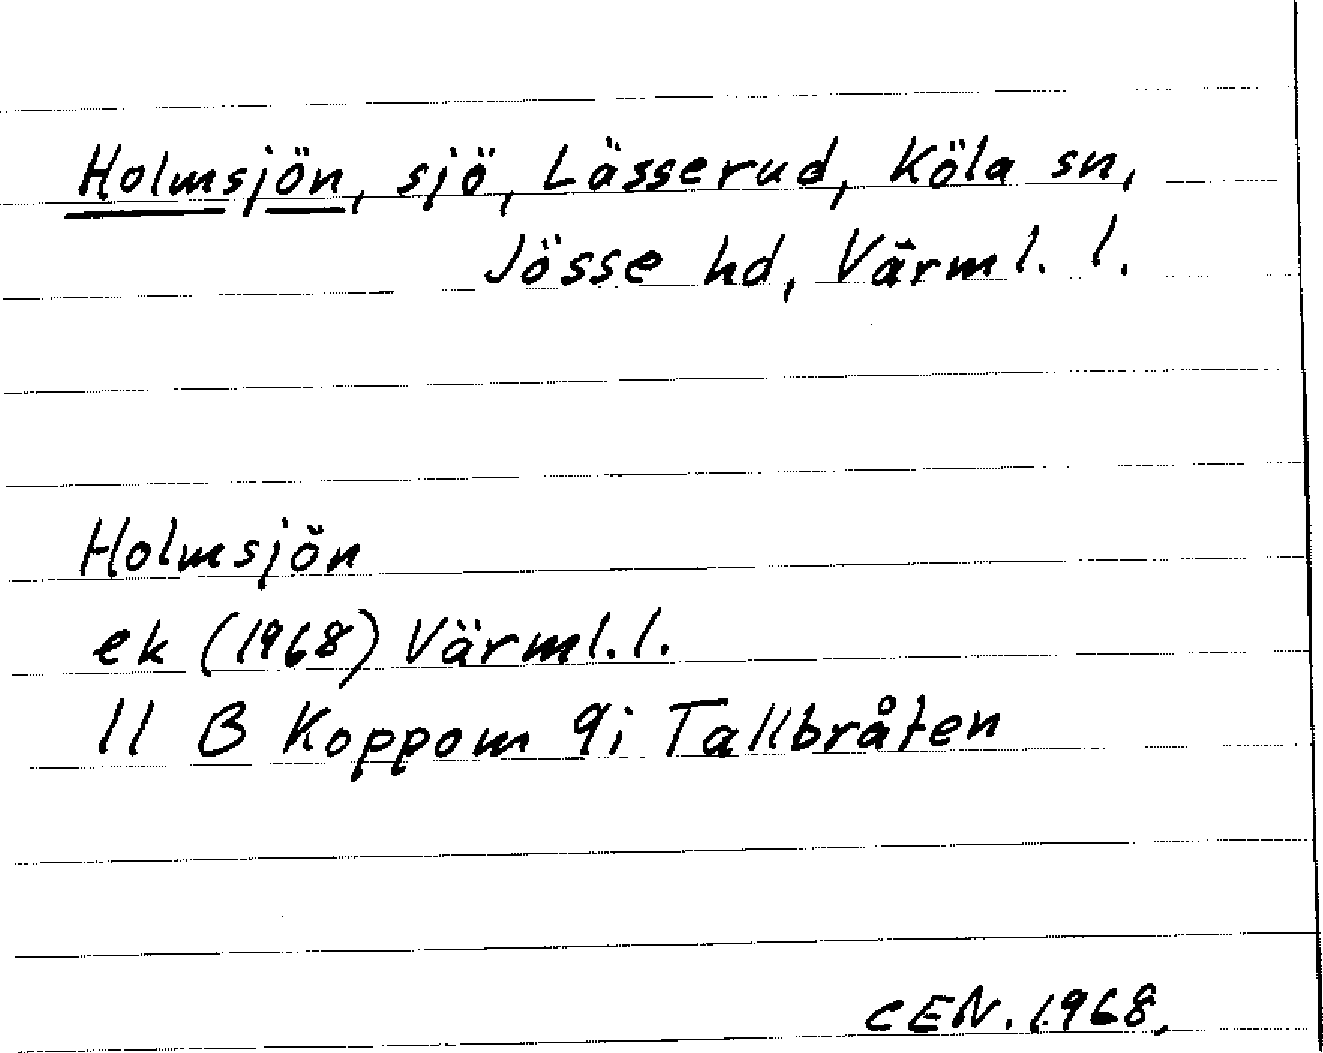 Holmsjön, sjö, Lässerud, Köla sn,
Jösse hd, Värml. l.
Holmsjön
ek (1968) Värml. l.
11 B Koppom 9i Tallbråten
CEN. 1968.